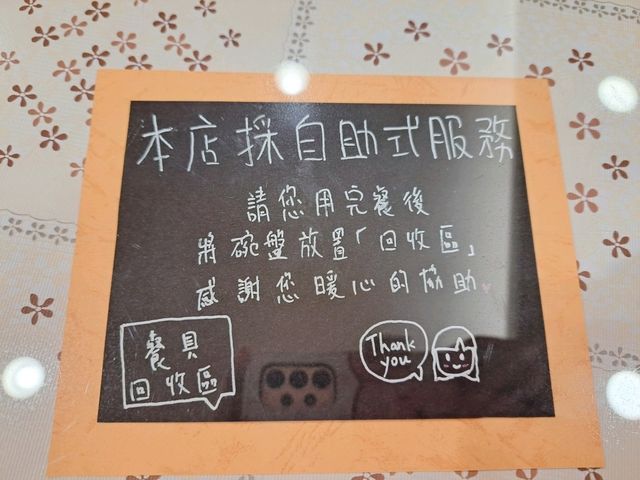 本店採自助式服務
請您用完餐後
將碗盤放置「回收區」
感謝您暖心的協助
餐具
回收區
Thank
you